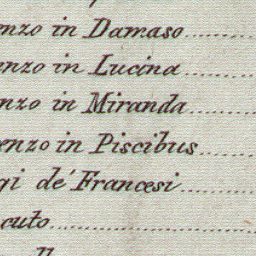 enzo in Damaso
enzo in Lucina
enzo in Miranda
enzo in Piscibus
gi de' Francesi
cuto